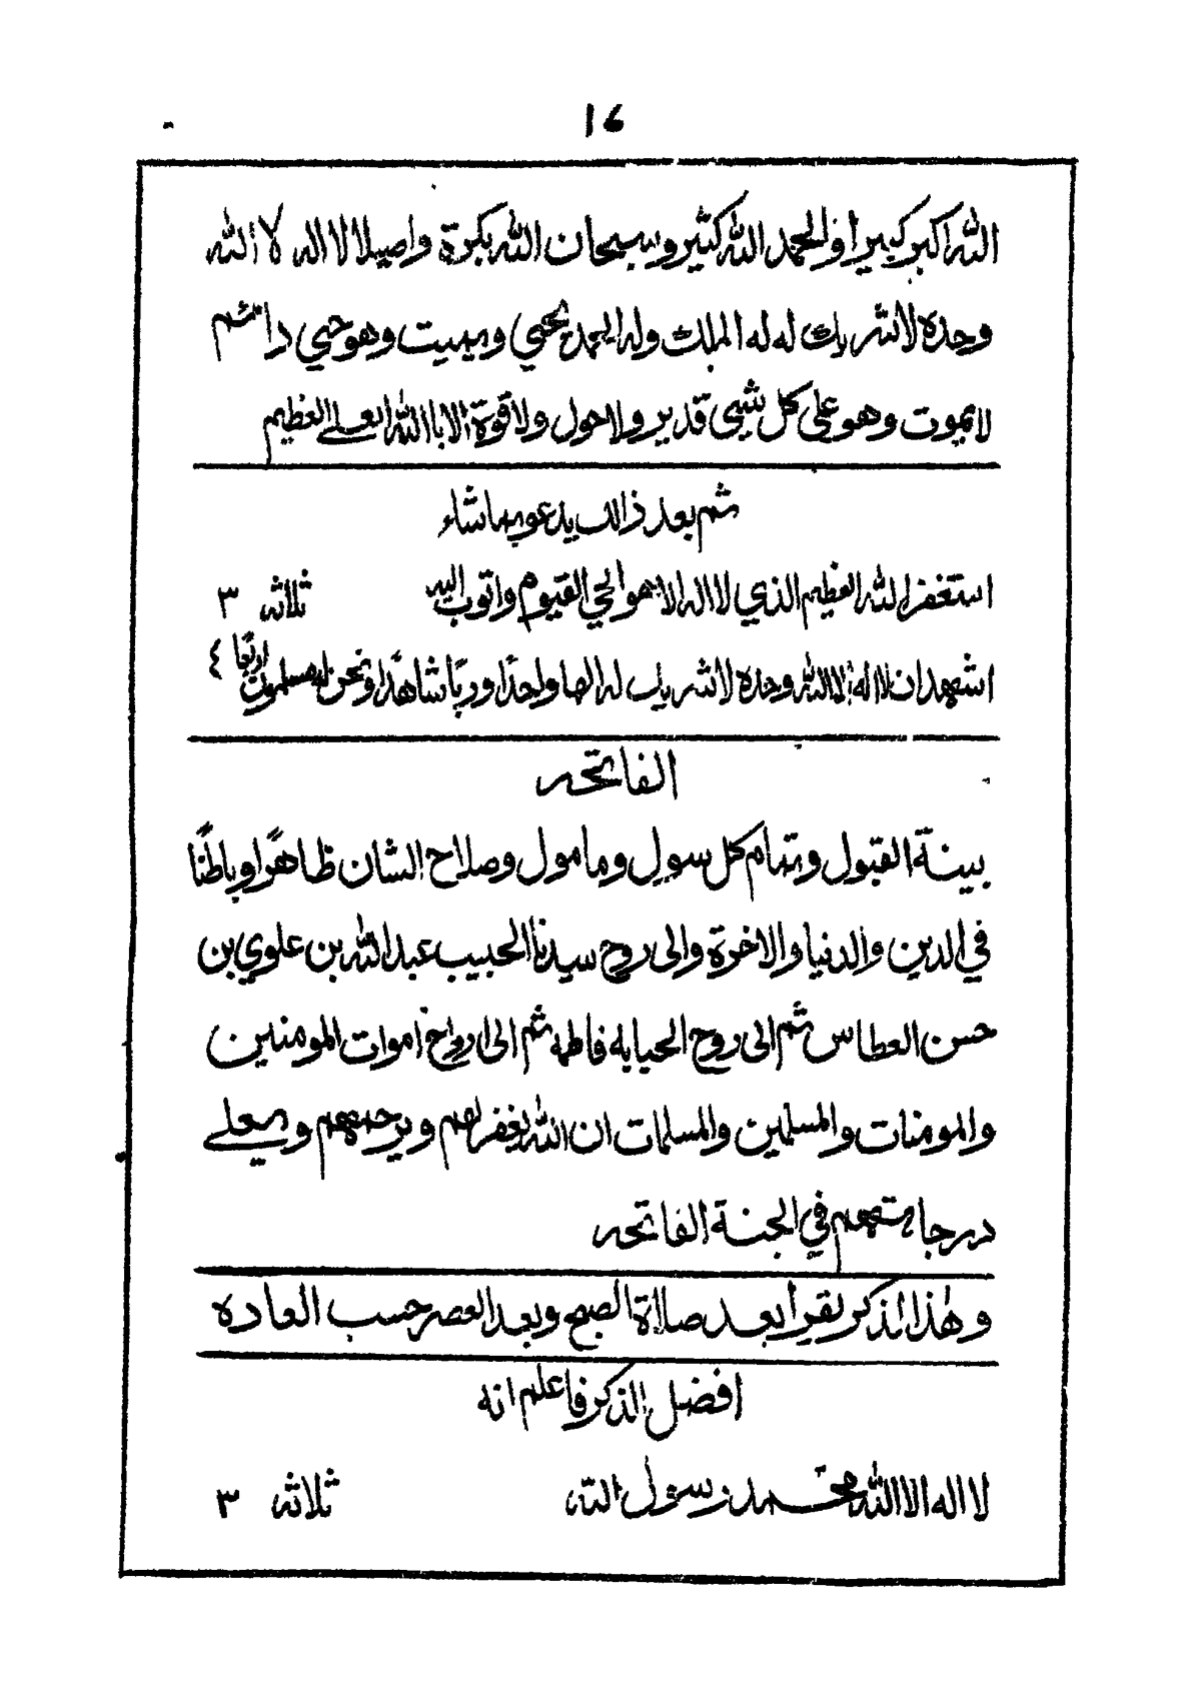 16
الله اكبر كبيرا والحمد الله كثير وسبحان الله بكرة واصيلا لا اله لا الله
وحده لا شريك له له الملك وله الحمد يحيي ويميت وهو حي دائم
لا يموت وهو على كل شيى قدير ولا حول ولا قوة الا باالله العلي العظيم
ثم بعد ذالك يدعو بماشاء
استغفر الله العظيم الذي لا اله الا هو الحي القيوم واتوب اليه ثلاثه ٣
اشهد ان لا اله الا الله وحده لا شريك له الها واحدًا وربًا شاهدًا ونحن له مسلمون اربعًا ٤
الفاتحه
بينة القبول وتمام كل سول ومامول وصلاح الشان ظاهرًا وباطنًا
في الدين والدنيا والاخرة والى روح سيدنا الحبيب عبد الله بن علوي بن
حسن العطاس ثم الى روح الحبابه فاطمه ثم الى ارواح اموات المومنين
والمومنات والمسلمين والمسلمات ان الله يغفر لهم ويرحمهم ويعلي
درجاتهم في الجنة الفاتحه
وهٰذا الذكر يقرأ بعد صلاة الصبح وبعد العصر حسب العاده
افضل الذكر فاعلم انه
لا اله الا الله محمد رسول الله ثلاثه ٣